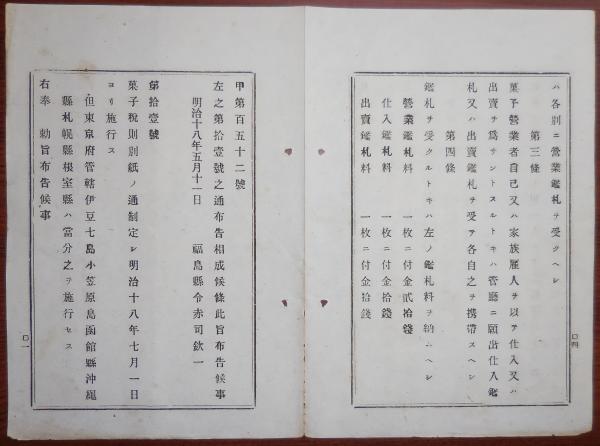 ハ各別ニ營業鑑札ヲ受クヘシ
第三條
菓子營業者自己又ハ家族雇人ヲ以テ仕入又ハ
出賣ヲ爲サントスルトキハ管廳ニ願出仕入鑑
札又ハ出賣鑑札ヲ受ケ各自之ヲ携帶スヘシ
第四條
鑑札ヲ受クルトキハ左ノ鑑札料ヲ納ムヘシ
營業鑑札料 一枚ニ付金貳拾錢
仕入鑑札料 一枚ニ付金拾錢
出賣鑑札料 一枚ニ付金拾錢
四
甲第百五十二號
左之第拾壹號之通布告相成候條此旨布告候事
明治十八年五月十一日 福島縣令赤司欽一
第拾壹號
菓子稅則別紙ノ通制定シ明治十八年七月一日
ヨリ施行ス
但東京府管轄伊豆七島小笠原島函館縣沖繩
縣札幌縣根室縣ハ當分之ヲ施行セス
右奉 勅旨布告候事
一